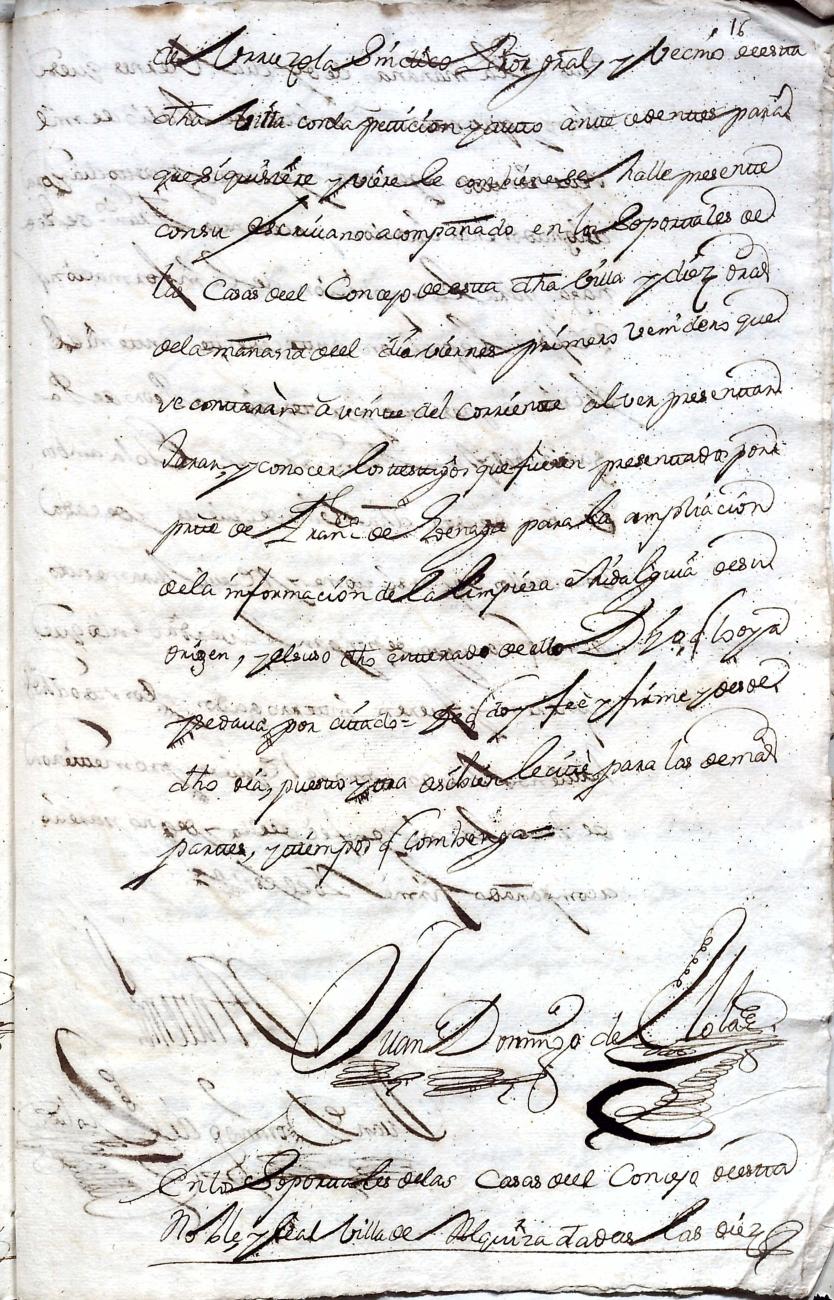 16
de Urruzola Sindico Prõr gñral, y vecino de esta
dha Villa con la peticion y auto antecedentes para
que si quisiere y viere le combiene se halle presente
con su escrivano acompañado en los Soportales de
las Casas de el Concejo de esta dha Villa y diez oras
de la mañana de el dia viernes primero venidero que
se contaràn à veinte del corriente al ver presentar
Jurar, y conocer los testigos que fueren presentados por
prte de Franco de para la ampliacion
de la informacion de la limpieza è hidalguia de su
origen, y el suso dho enterado de ello Dho, q lo oya
y se dava por citado= de q doy fee y firme y desde
dho dia, puesto y ora tambien le cite para las demas
partes, y tiempos q combenga=
Juan Domingo de
En los Soportales de las Casas de el Concejo de esta
Noble, y Leal Villa de Alquiza dadas las diez